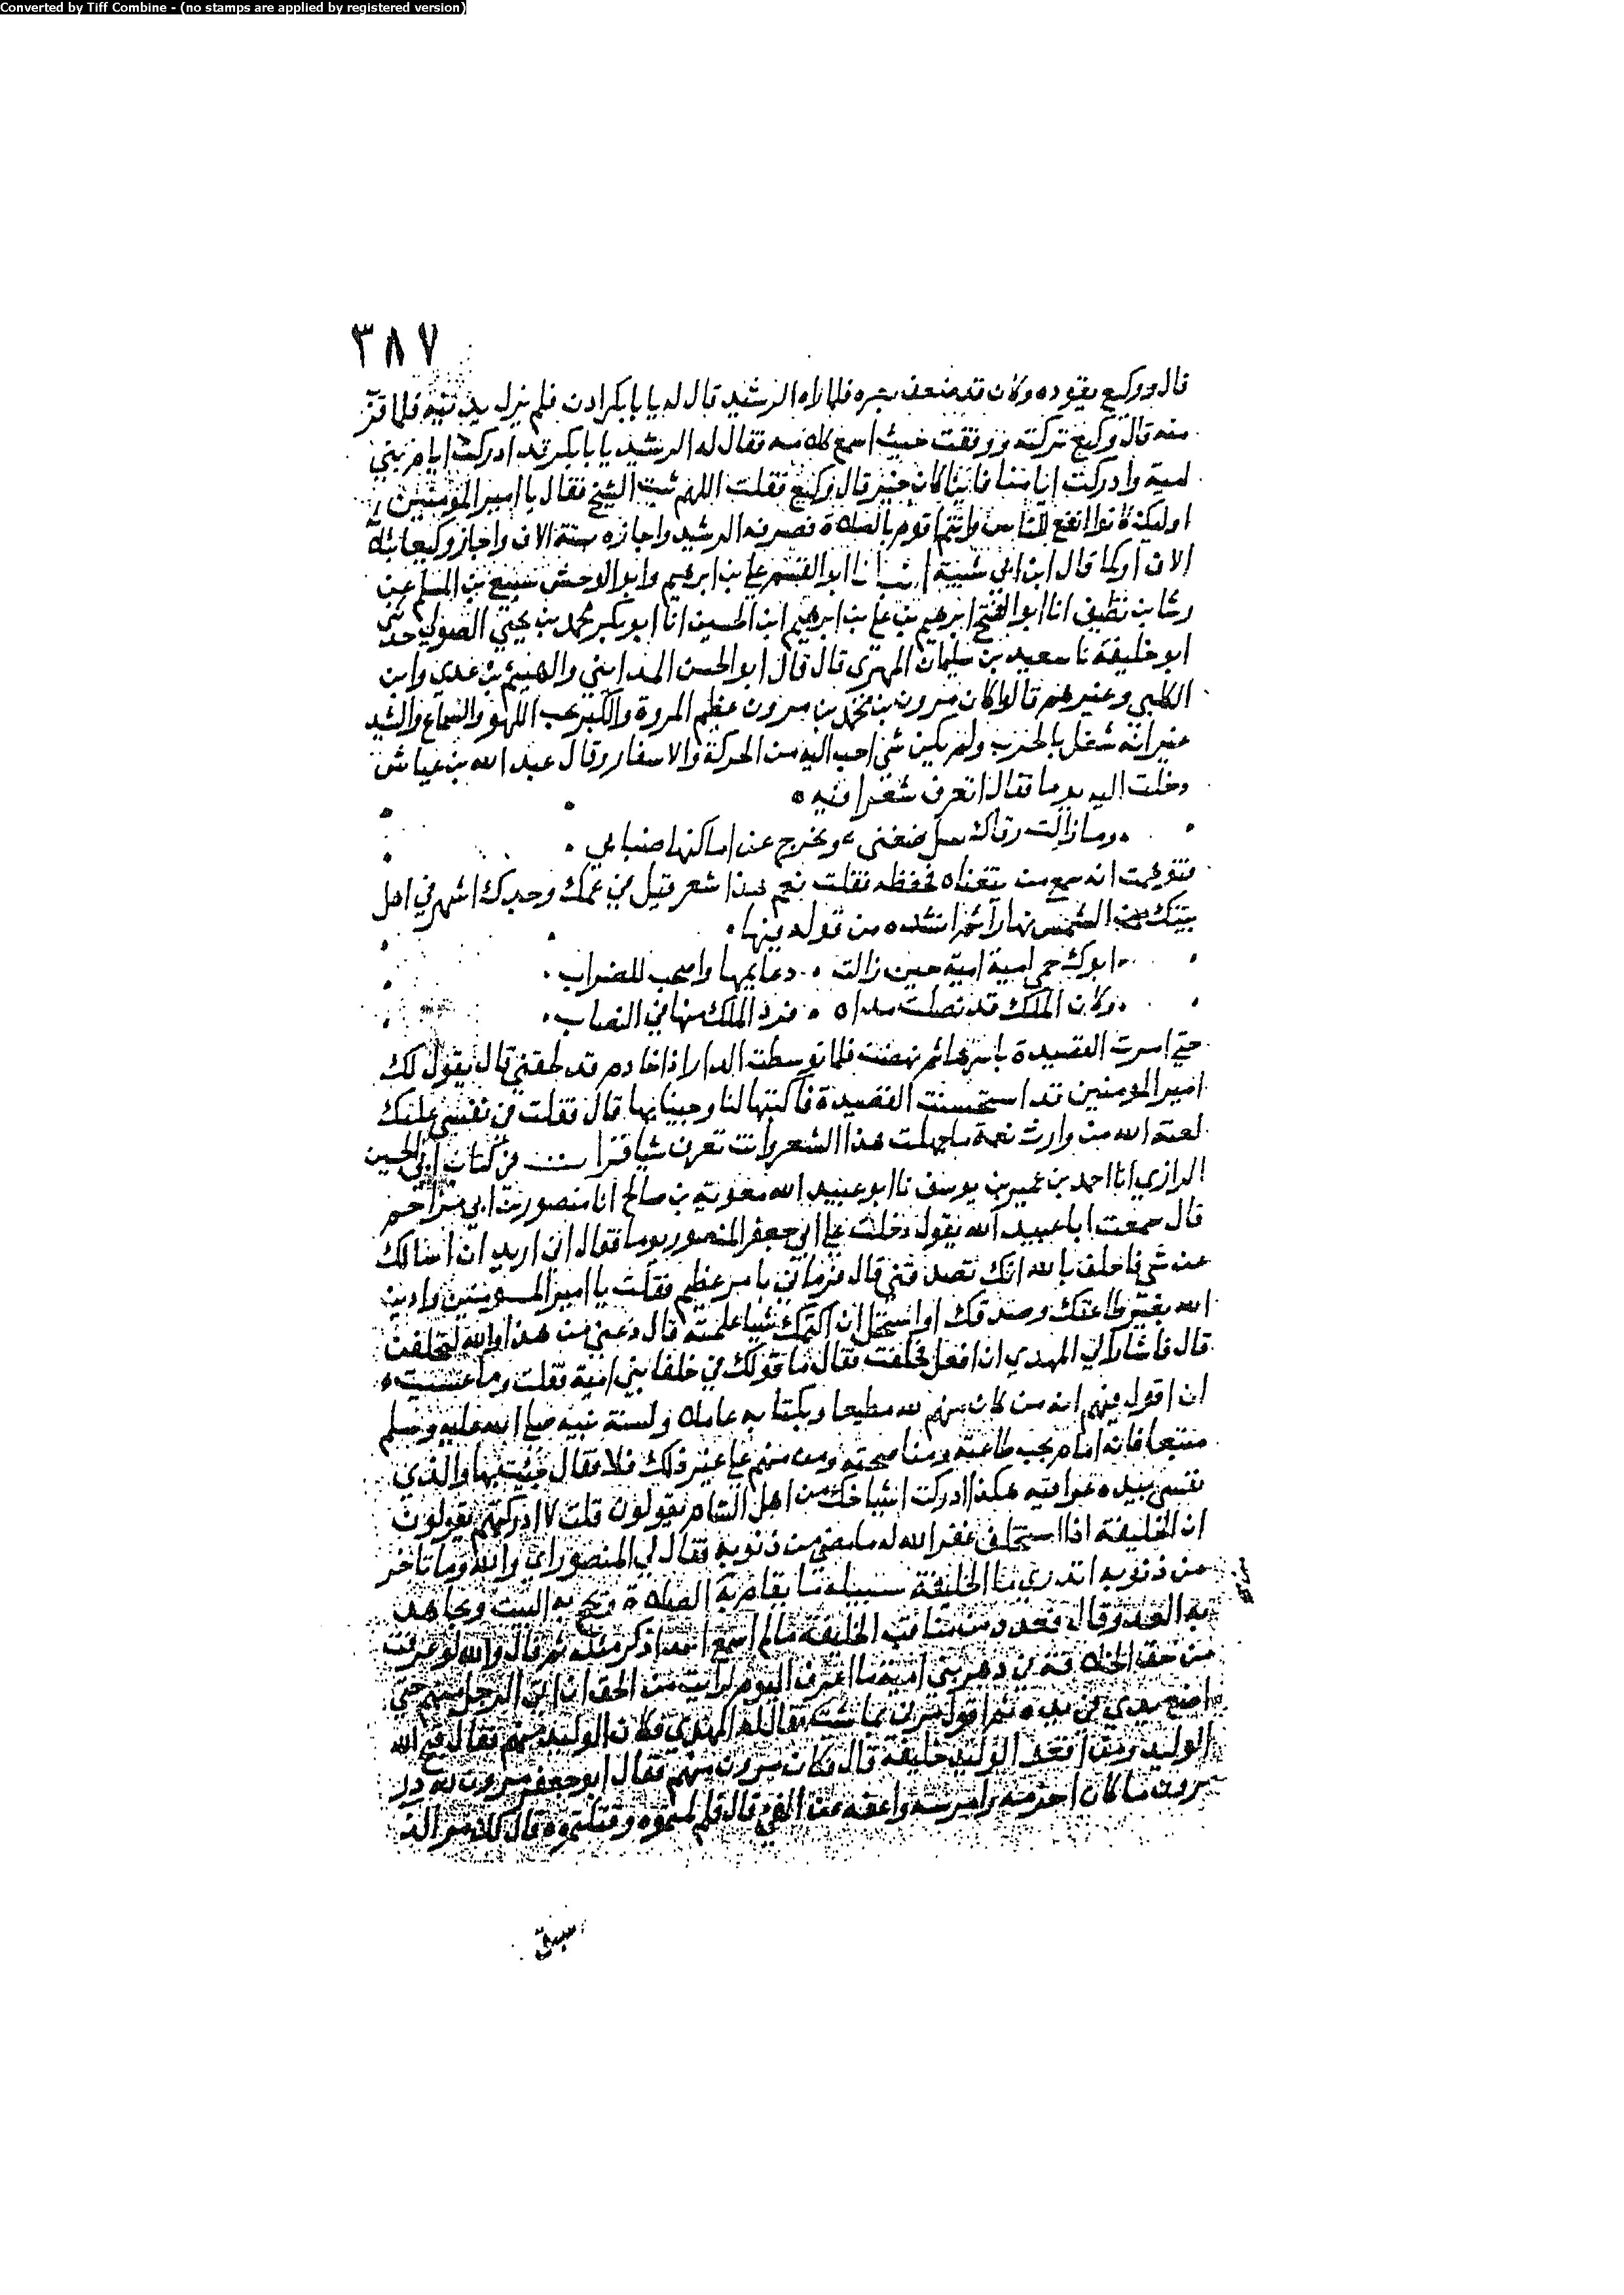 Converted by Tiff Combine - (no stamps are applied by registered version)
٣٨٧
قال ووكيع يقوده وكان قد ضعف بصره فلما راه الرشيد قال له يا با بكر ادن فلم يزل يدنيه فلما قرب
منه قال وكيع تركته ووقفت حيث اسمع كلامه فقال له الرشيد يا با بكر قد ادركت ايام بني
امية وادركت ايامنا فاينا كان خير قال وكيع فقلت اللهم ثبت الشيخ فقال يا امير المؤمنين
اوليك كانوا انفع للناس وانتم اقوم بالصلاة فصرفه الرشيد واجازه ستة الاف واجاز وكيعا ثلثة
الاف او كما قال ابن ابي شيبة انبانا ابو القسم علي بن ابرهيم وابو الوحش سبيع بن المسلم عن
رشا بن نظيف انا ابو الفتح ابرهيم بن علي بن ابرهيم ابن الحسين انا ابو بكر محمد بن يحيى الصولي حدثني
ابو خليفة نا سعيد بن سليمان المهري قال قال ابو الحسن المدايني والهيثم بن عدي وابن
الكلبي وغيرهم قالوا كان مرون بن محمد بن مرون عظيم المروة والكبر يحب اللهو والسماع
غير انه شغل بالحرب ولم يكن شي احب اليه من الحركة والاسفار وقال عبد الله بن عياش
دخلت اليه يوما فقال اتعرف شعرا فيه
وما زالت رقاك تسل ضغني ويخرج عن اماكنها ضبابي
فتوهمت انه سمع من يتغناه فحفظه فقلت نعم هذا شعر قيل في عمك وجدك اشهر في اهل
بيتك من الشمس نهارا ثم انشده من قوله فيها
ابوك حمى امية حين زالت دعايمها واصحب للضراب
وكان الملك قد نصلت يداه فرد الملك منها في النصاب
حتى امرت القصيدة باسرها ثم نهضت فلما توسطت الدار اذا خادم قد لحقني قال يقول لك
امير المومنين قد استحسنت القصيدة فاكتبها لنا وجينا بها قال فقلت في نفسي عليك
لعنة الله من وارث نعمة ما جهلت هذا الشعر وانت تعرف شيا قرات في كتاب ابي الحسين
الرازي انا احمد بن عمير بن يوسف نا ابو عبيد الله معوية بن صالح انا منصور بن ابي مزاحم
قال سمعت ابا عبيد الله يقول دخلت على ابي جعفر المنصور يوما فقال اني اريد ان اسالك
عن شي فاحلف بالله انك تصدقني قال فرماني بامر عظيم فقلت يا امير المومنين وادين
الله بغير طاعتك وصدقك او استحل ان اكتمك شيا علمته قال دعني من هذا والله لتحلفن
قال فاشار الي المهدي ان افعل فحلفت فقال ما قولك في خلفا بني امية فقلت وما عسيت
ان اقول فيهم انه من كان منهم لله مطيعا وبكتابه عاملا ولسنة نبيه صلى الله عليه وسلم
متبعا فانه امام يجب طاعته ومناصحته ومن منهم على غير ذلك فلا فقال جيت بها والذي
نفسي بيده عراقية هكذا ادركت اشياخك من اهل الشام يقولون قلت لا ادركتهم يقولون
ان الخليفة اذا استخلف غفر الله له ما مضى من ذنوبه فقال لي المنصور اي والله وما تاخر
من ذنوبه اتدري ما الخليفة سبيله ما يقام به الصلاة ويحج به البيت ويجاهد
به العدو قال فعدد من مناقب الخليفة ما لم اسمع احدا ذكر مثله ثم قال والله لو عرفت
من حق الخلافة في دهر بني امية ما اعرف اليوم لرايت من الحق ان اتي الرجل منهم حتى
اضع يدي في يده ثم اقول مرني بما شئت فقال له المهدي فكان الوليد منهم فقال قبح الله
الوليد ومن اقعد الوليد خليفة قال فكان مرون منهم فقال ابو جعفر مرون لله در
مرون ما كان احزمه وامرسه واعفه عن الفي قال فلم لمتموه وقتلتموه قال للامر الذ
سبق